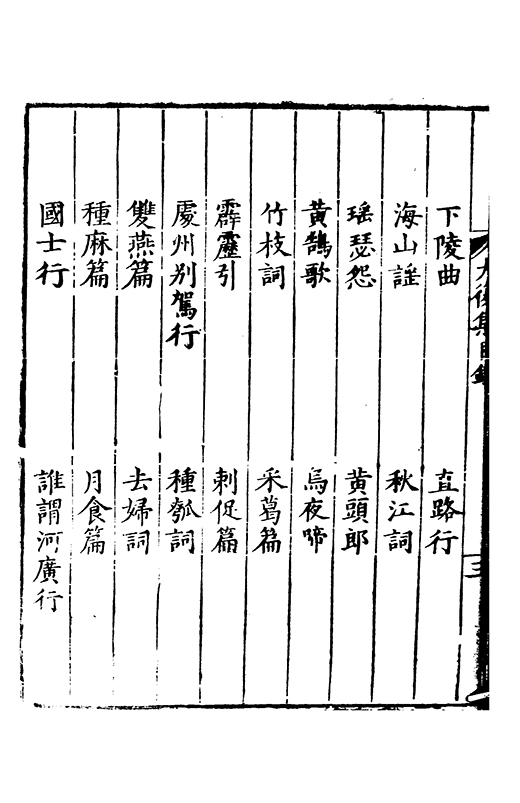 後集目錄
三
下陵曲　直路行
海山謡　秋江詞
瑶瑟怨　黄頭郎
黄鵠歌　烏夜啼
竹枝詞　采葛篇
霹靂引　刺促篇
處州别駕行　種瓠詞
雙燕篇　去婦詞
種麻篇　月食篇
國士行　誰謂河廣行